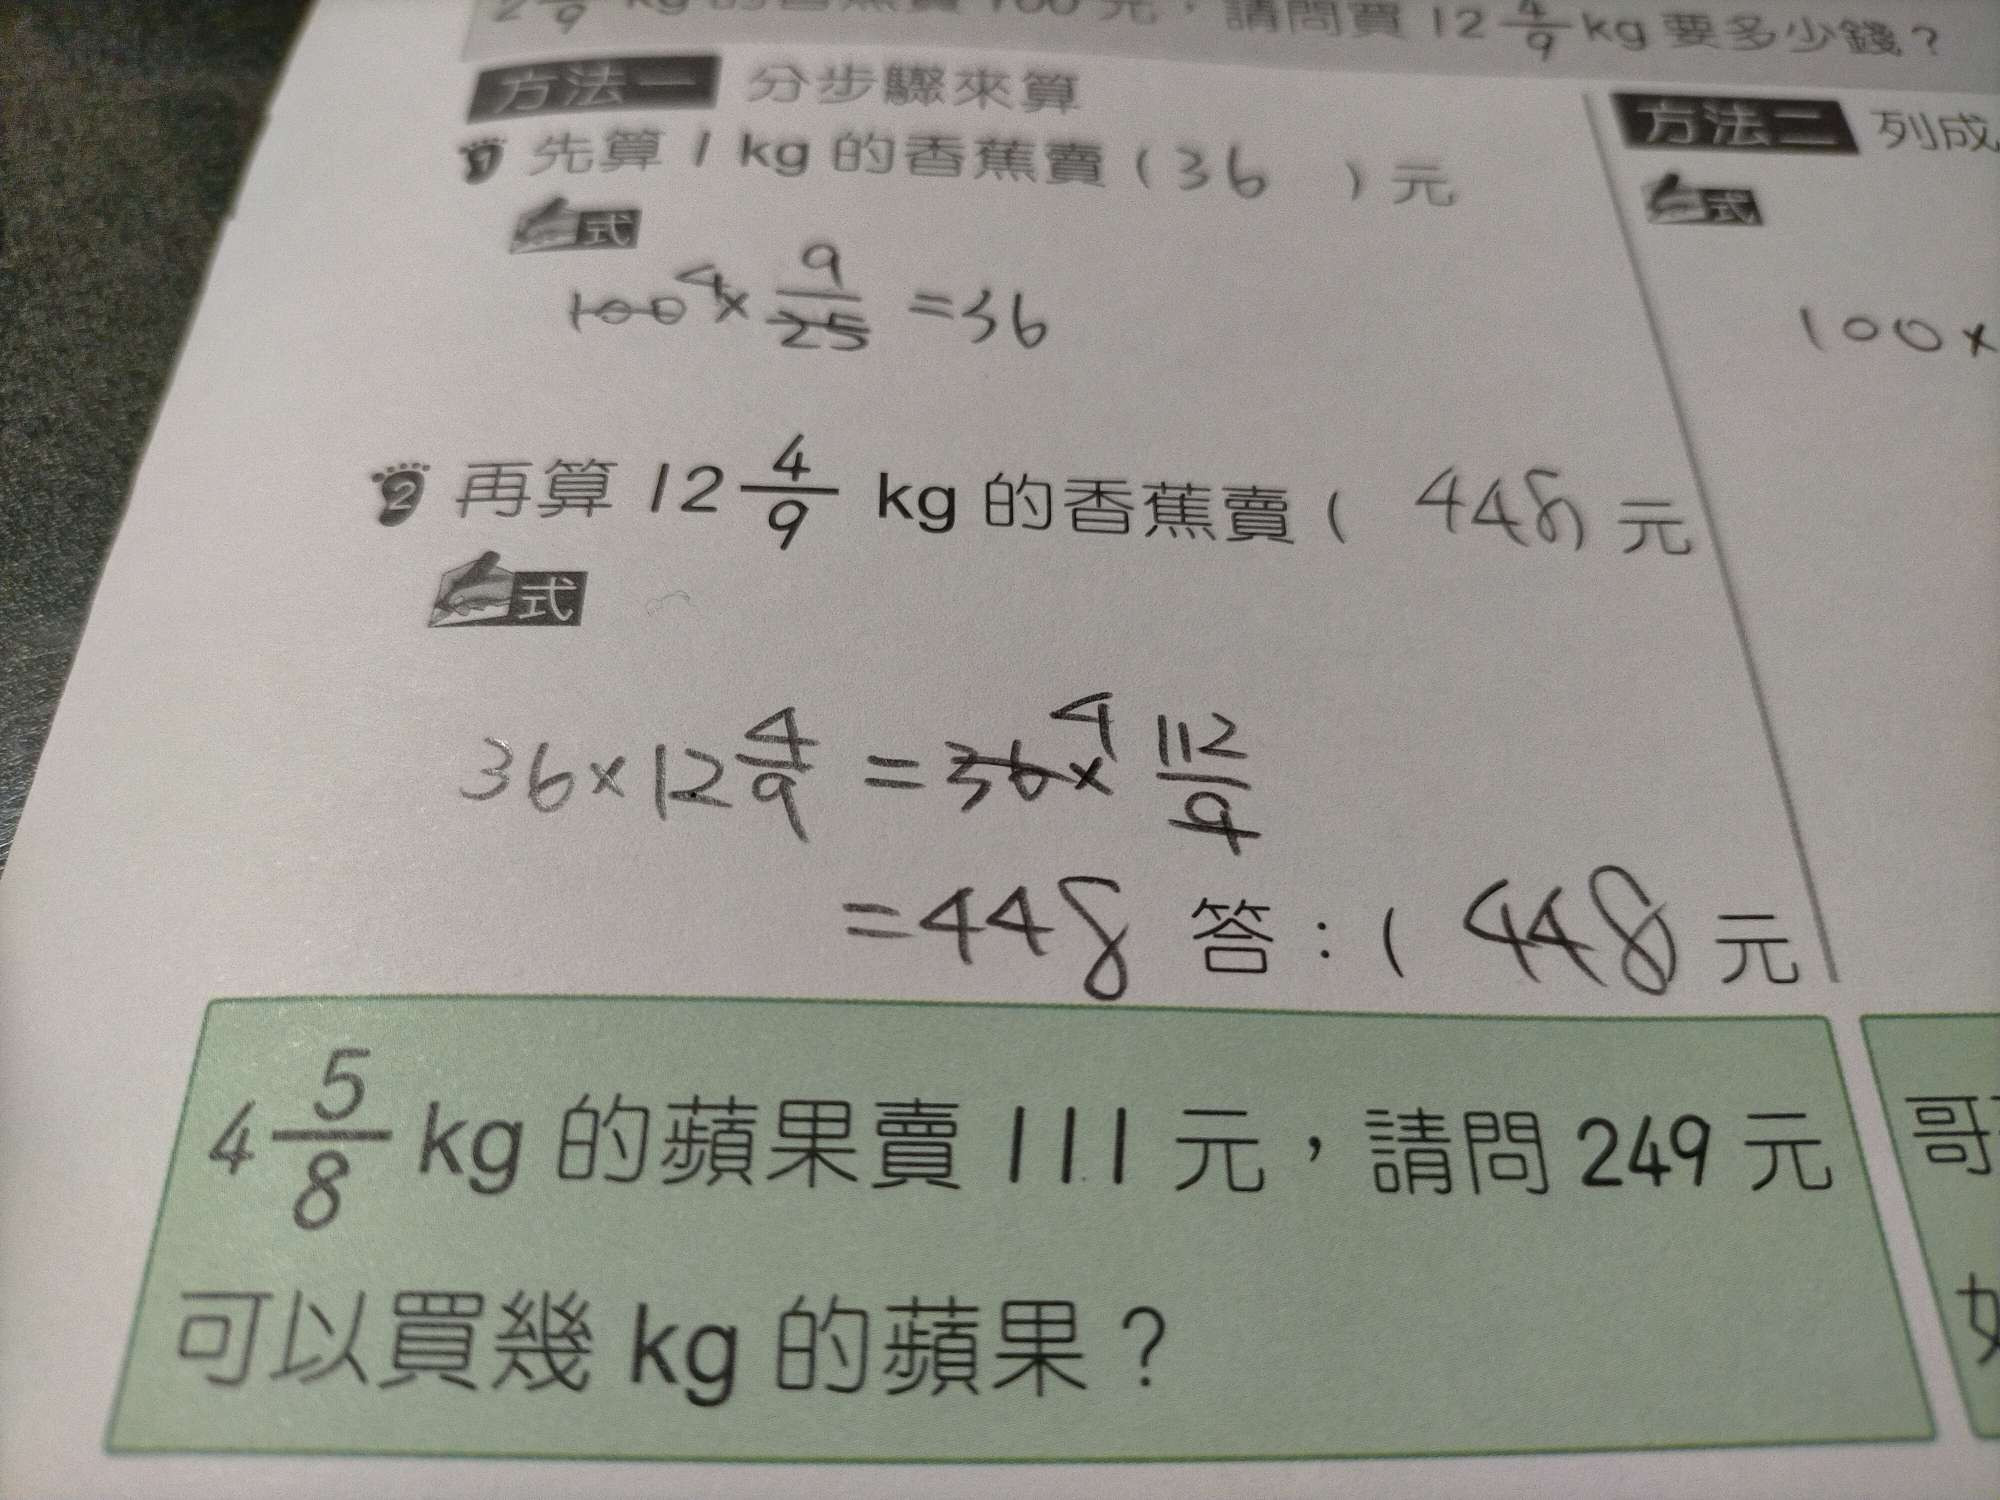 2 7/9 kg 的香蕉賣 100 元，請問買 12 4/9 kg 要多少錢？
方法一 分步驟來算
1 先算 1 kg 的香蕉賣 ( 36 ) 元
式
100 4 × 9/25 = 36
2 再算 12 4/9 kg 的香蕉賣 ( 448 ) 元
式
36 × 12 4/9 = 36 4 × 112/9
= 448 答：( 448 元
方法二 列成
式
100 ×
4 5/8 kg 的蘋果賣 111 元，請問 249 元
可以買幾 kg 的蘋果？
哥